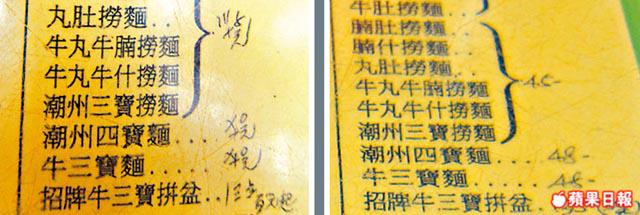 丸肚撈麵..
牛丸牛腩撈麵
牛丸牛什撈麵
潮州三寶撈麵
潮州四寶麵...
牛三寶麵...
招牌牛三寶拼盆..
牛肚撈麵..
腩肚撈麵..
腩什撈麵..
丸肚撈麵..
牛丸牛腩撈麵
牛丸牛什撈麵
潮州三寶撈麵
45-
潮州四寶麵....48-
牛三寶麵....48-
招牌牛三寶拼盆
蘋果日報